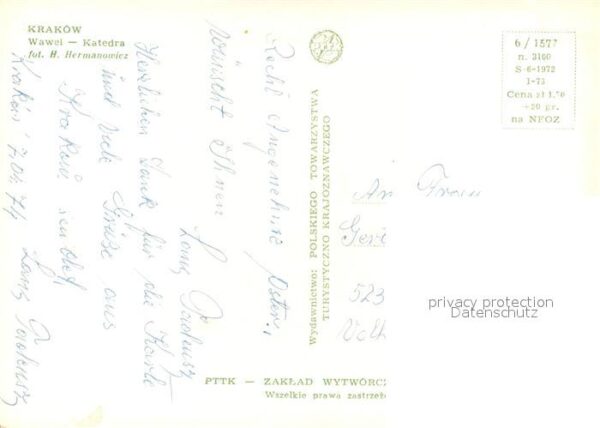 KRAKÓW
Wawel — Katedra
fot. H. Hermanowicz
Recht Angenehme Ostern
wünscht Ihnen
Tadeusz
Herzlichen Dank für die Karte
und viele Grüße aus
Krakau sendet
Kraków
Tadeusz
Wydawnictwo: POLSKIEGO TOWARZYSTWA
TURYSTYCZNO KRAJOZNAWCZEGO
6 / 1577
n. 3160
S-6-1972
1-73
Cena zł 1.70
+20 gr.
na NFOZ
An Frau
Ger
523
privacy protection
Datenschutz
PTTK — ZAKŁAD WYTWÓRC
Wszelkie prawa zastrzeż